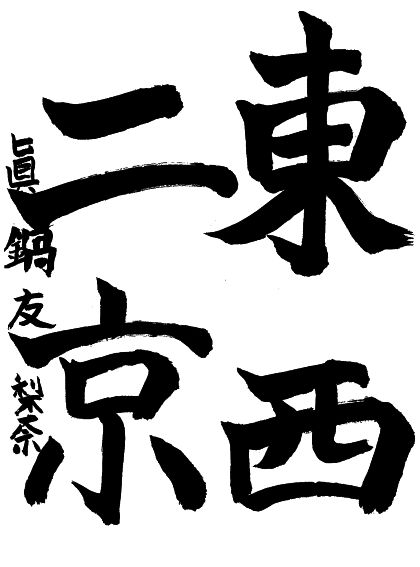 東西
二京
眞鍋友梨奈